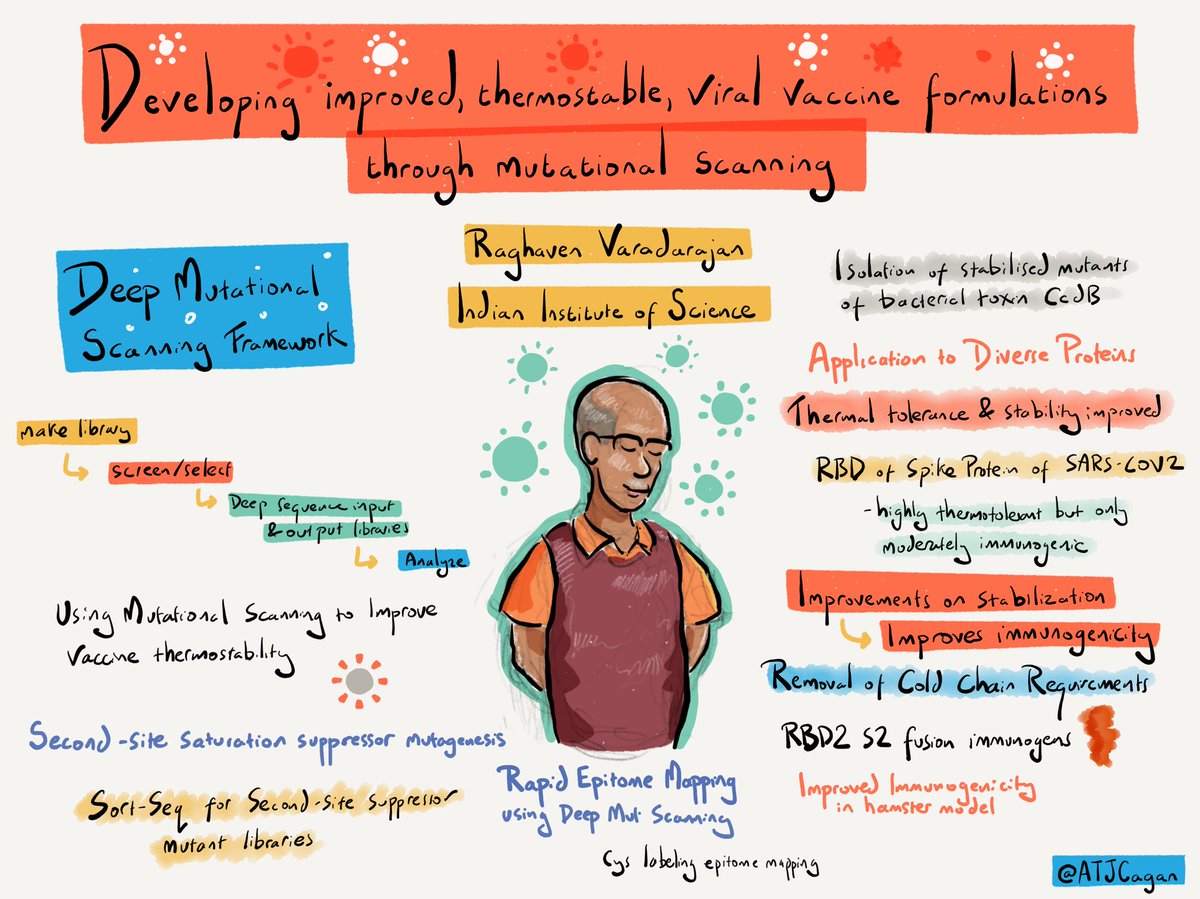 Developing improved, thermostable, viral vaccine formulations
through mutational scanning
Raghaven Varadarajan
Indian Institute of Science
Deep Mutational
Scanning Framework
make library
screen/select
Deep sequence input
& output libraries
Analyze
Using Mutational Scanning to Improve
vaccine thermostability
Second-site saturation suppressor mutagenesis
Sort-Seq for Second-site suppressor
mutant libraries
Rapid Epitome Mapping
using Deep Mut Scanning
Cys labeling epitome mapping
Isolation of stabilised mutants
of bacterial toxin CcdB
Application to Diverse Proteins
Thermal tolerance & stability improved
RBD of Spike Protein of SARS-COV2
- highly thermotolerant but only
moderately immunogenic
Improvements on stabilization
Improves immunogenicity
Removal of Cold Chain Requirements
RBD2 S2 fusion immunogens
Improved Immunogenicity
in hamster model
@ATJCagan